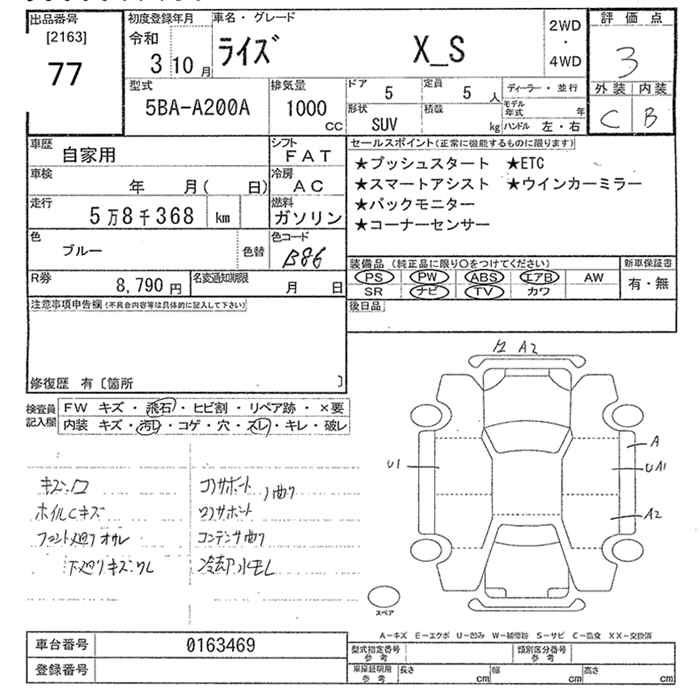 出品番号
[2163]
77
初度登録年月
令和
3 10 月
車名・グレード
ライズ X_S
2WD
・
4WD
評価点
3
外装 内装
C B
型式
5BA-A200A
排気量
1000
CC
ドア
5
定員
5 人
形状
SUV
積載
kg
ディーラー・並行
モデル年式 年
ハンドル 左・右
車歴
自家用
シフト
FAT
車検
年 月( 日)
冷房
AC
走行
5万8千368 km
燃料
ガソリン
色
ブルー
色替
色コード
B86
R券
8,790 円
名変通知期限
月 日
セールスポイント(正常に機能するものに限ります)
★プッシュスタート ★ETC
★スマートアシスト ★ウインカーミラー
★バックモニター
★コーナーセンサー
装備品(純正品に限り○をつけてください)
PS PW ABS エアB AW
SR ナビ TV カワ
新車保証書
有・無
後日品
注意事項申告欄(不具合内容等は具体的に記入して下さい)
修復歴 有〔箇所 〕
検査員
記入欄
FW キズ・飛石・ヒビ割・リペア跡・×要
内装 キズ・汚レ・コゲ・穴・スレ・キレ・破レ
ホイルCキズ
コアサポート
コンデンサ曲り
下廻りキズ・ワレ
冷却水モレ
A2
U1
A
UA1
A2
スペア
A-キズ E-エクボ U-凹み W-補修跡 S-サビ C-腐食 XX-交換済
車台番号
0163469
登録番号
型式指定番号
参考
類別区分番号
参考
車庫証明用
参考
長さ cm
幅 cm
高さ cm